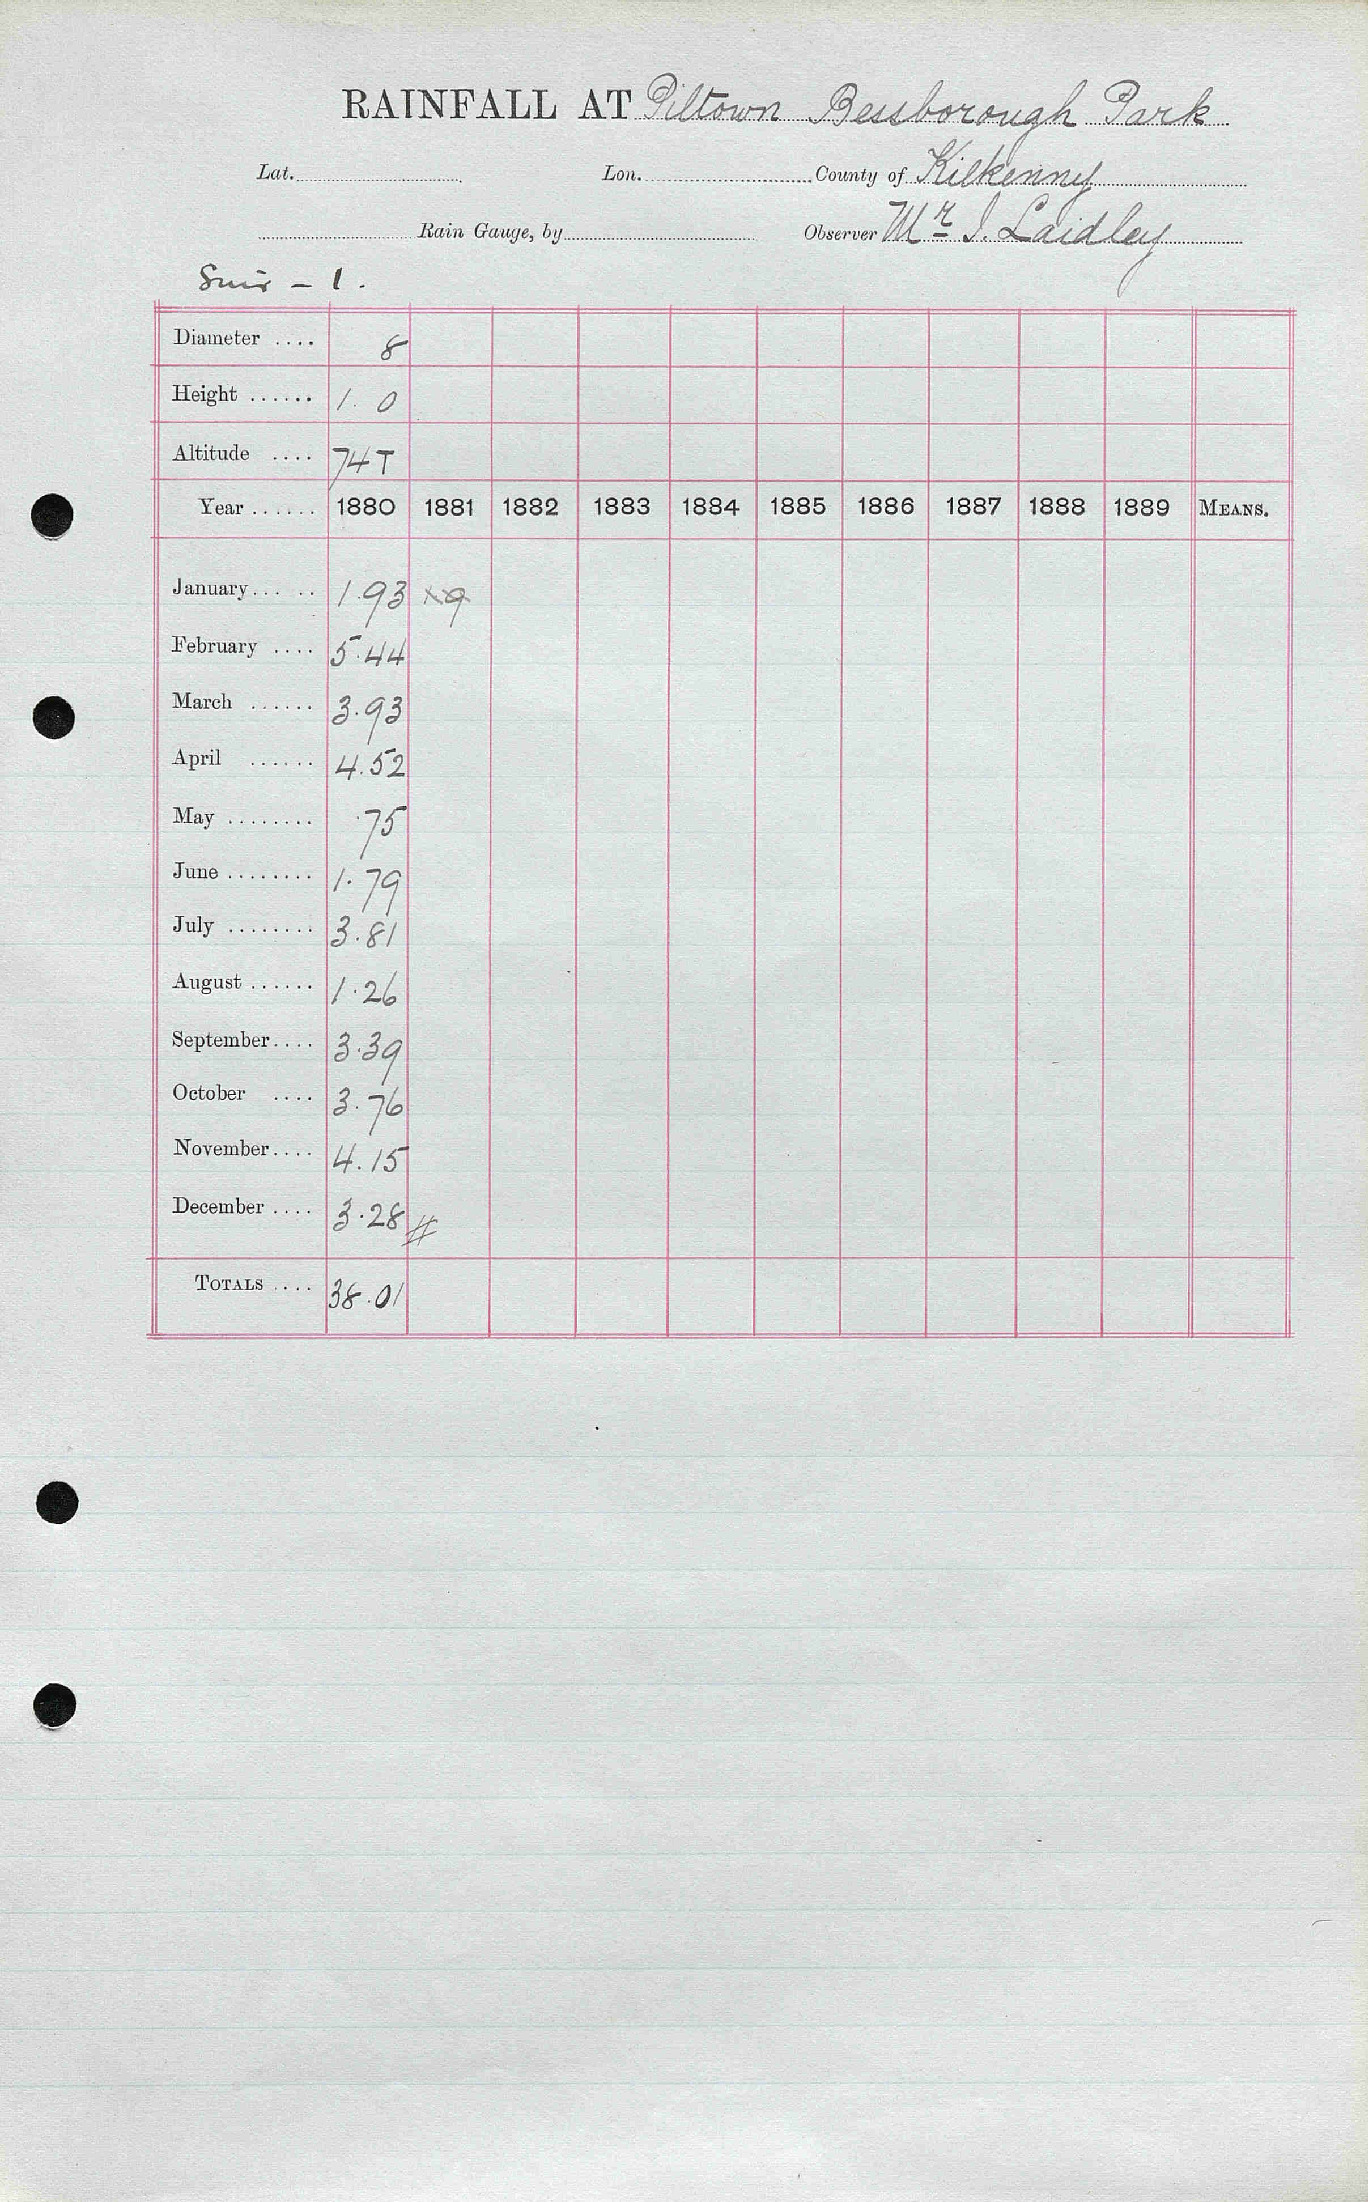 RAINFALL AT Piltown Bessborough Park
Lat. Lon. County of Kilkenny
Rain Gauge, by Observer Mr I. Laidley
Suir - 1.
Diameter .... 8
Height ...... 1. 0
Altitude .... 74T
Year ...... 1880 1881 1882 1883 1884 1885 1886 1887 1888 1889 MEANS.
January... .. 1.93 x9
February .... 5.44
March ...... 3.93
April ...... 4.52
May ........ .75
June ........ 1.79
July ........ 3.81
August ...... 1.26
September.... 3.39
October .... 3.76
November.... 4.15
December .... 3.28 #
TOTALS .... 38.01